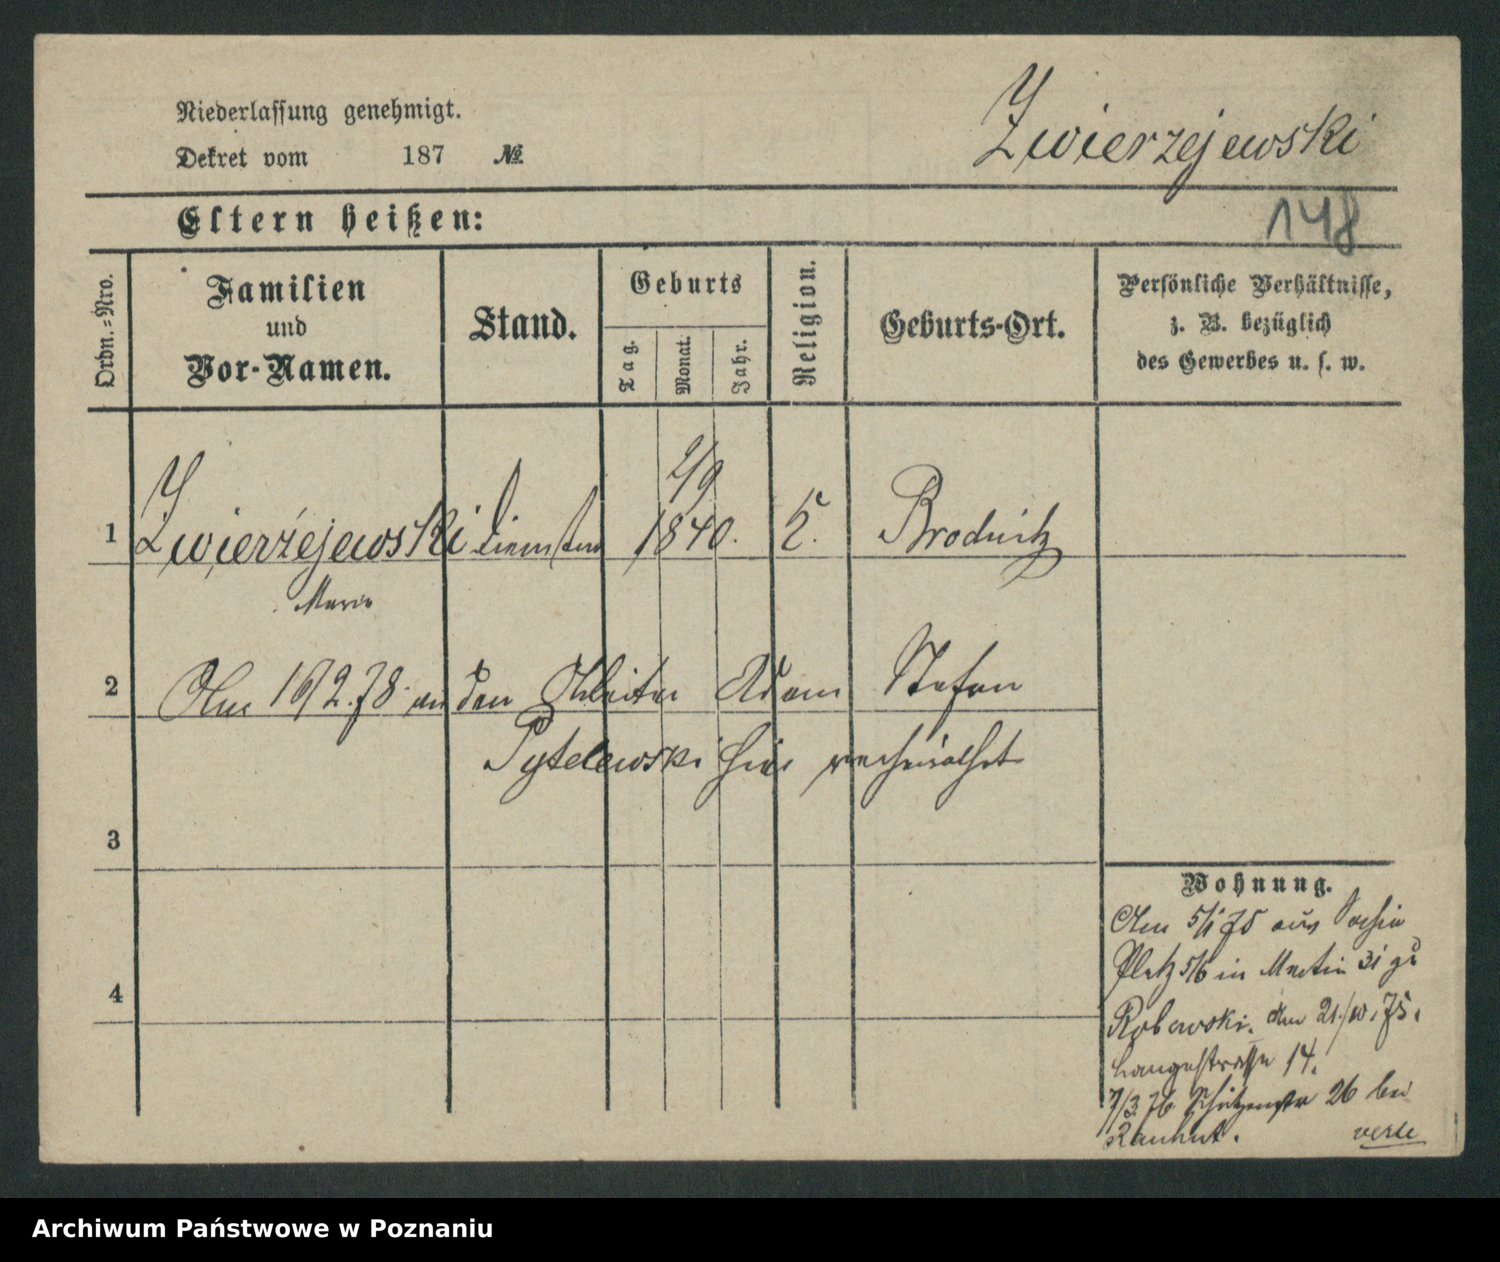 Niederlassung genehmigt.
Dekret vom 187 №
Zwierzejewski
148
Eltern heißen:
Ordn.=Nro.
Familien
und
Vor-Namen.
Stand.
Geburts
Tag.
Monat.
Jahr.
Religion.
Geburts-Ort.
Persönliche Verhältnisse,
z. B. bezüglich
des Gewerbes u. s. w.
2/9
1 Zwierzejewski 1840. Brodnitz
Marie
2 Am 16/2.78 an den Arbeiter Adam Stefan
Pytelewski hier verheirathet
3
4
Wohnung.
Am 5/1 75 aus
Platz 5/6 in Martin 31 zu
am 21./10.75.
Langestrasse 14.
7/3.76 Schützenstr 26 bei
Rauhut. verte
Archiwum Państwowe w Poznaniu